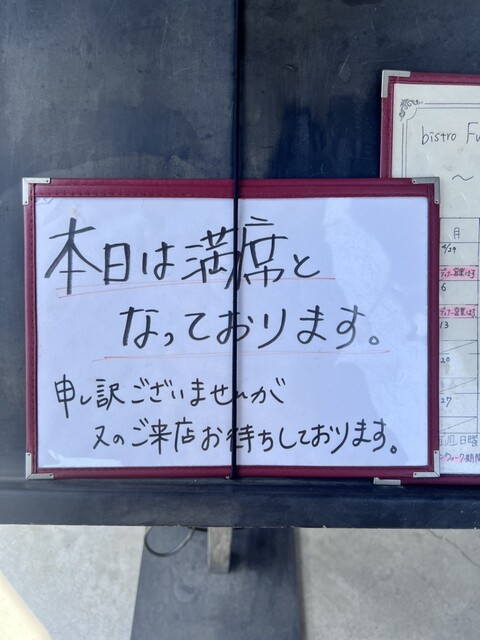 本日は満席と
なっております。
申し訳ございませんが
又のご来店お待ちしております。
bistro Fu
～
月
4/29
6
13
20
27